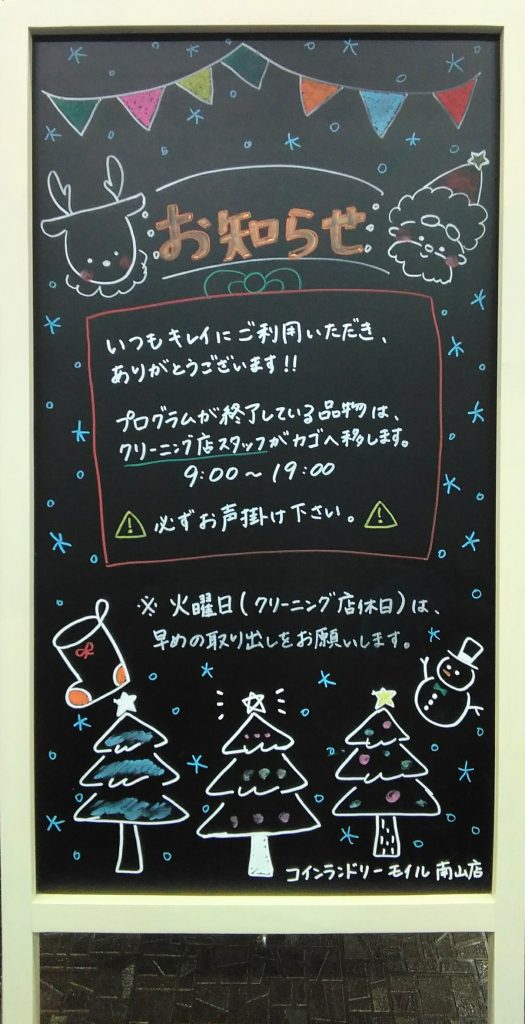 お知らせ
いつもキレイにご利用いただき、
ありがとうございます!!
プログラムが終了している品物は、
クリーニング店スタッフがカゴへ移します。
9:00～19:00
! 必ずお声掛け下さい。 !
※ 火曜日(クリーニング店休日)は、
早めの取り出しをお願いします。
コインランドリー モイル 南山店